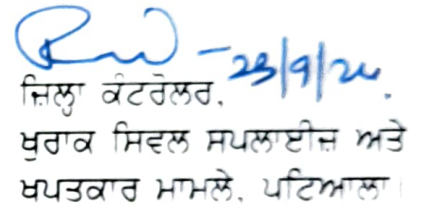 23/9/24.
ਜ਼ਿਲ੍ਹਾ ਕੰਟਰੋਲਰ,
ਖੁਰਾਕ ਸਿਵਲ ਸਪਲਾਈਜ਼ ਅਤੇ
ਖਪਤਕਾਰ ਮਾਮਲੇ, ਪਟਿਆਲਾ